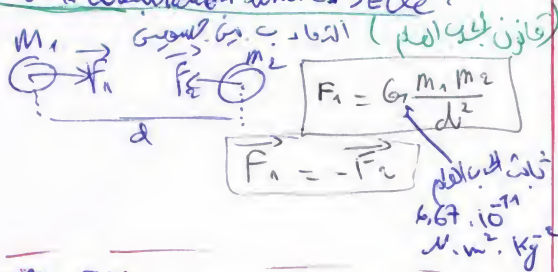 (قانون الجذب العام) التجاذب بين جسمين
M₁ F₁ F₂ m₂
d
F₁ = G m₁ m₂ / d²
F₁ = -F₂
ثابت الجذب العام
6,67 . 10⁻¹¹
N . m² . Kg⁻²